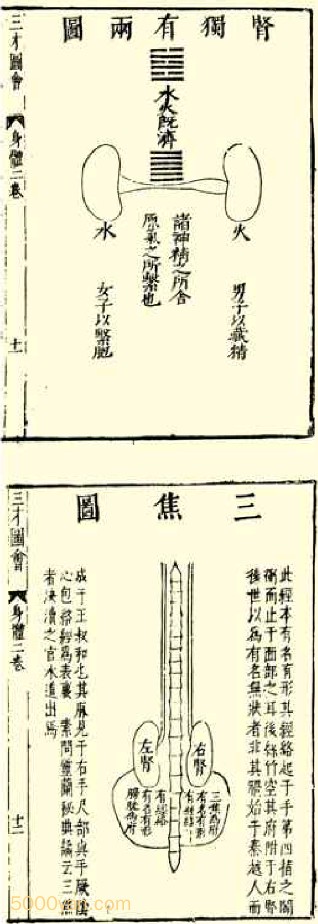 腎獨有兩圖
水火既濟
火
諸神精之所舍
原氣之所繫也
水
男子以藏精
女子以繫胞
三才圖會
身體二卷
十一
三焦圖
此經本有名有形其經絡起于手第四指之間
衝而止于面部之耳後絲竹空其府附于右腎
後世以為有名無狀者非其
始于秦越人而
右腎
左腎
三焦為府
有名有形
有經絡
有經絡
有名有形
膀胱為府
成于王叔和也其脈見于右手尺部與手厥陰
心包絡經為表裏 素問靈蘭秘典論云三焦
者決瀆之官水道出焉
三才圖會
身體二卷
十二
5000yan.com